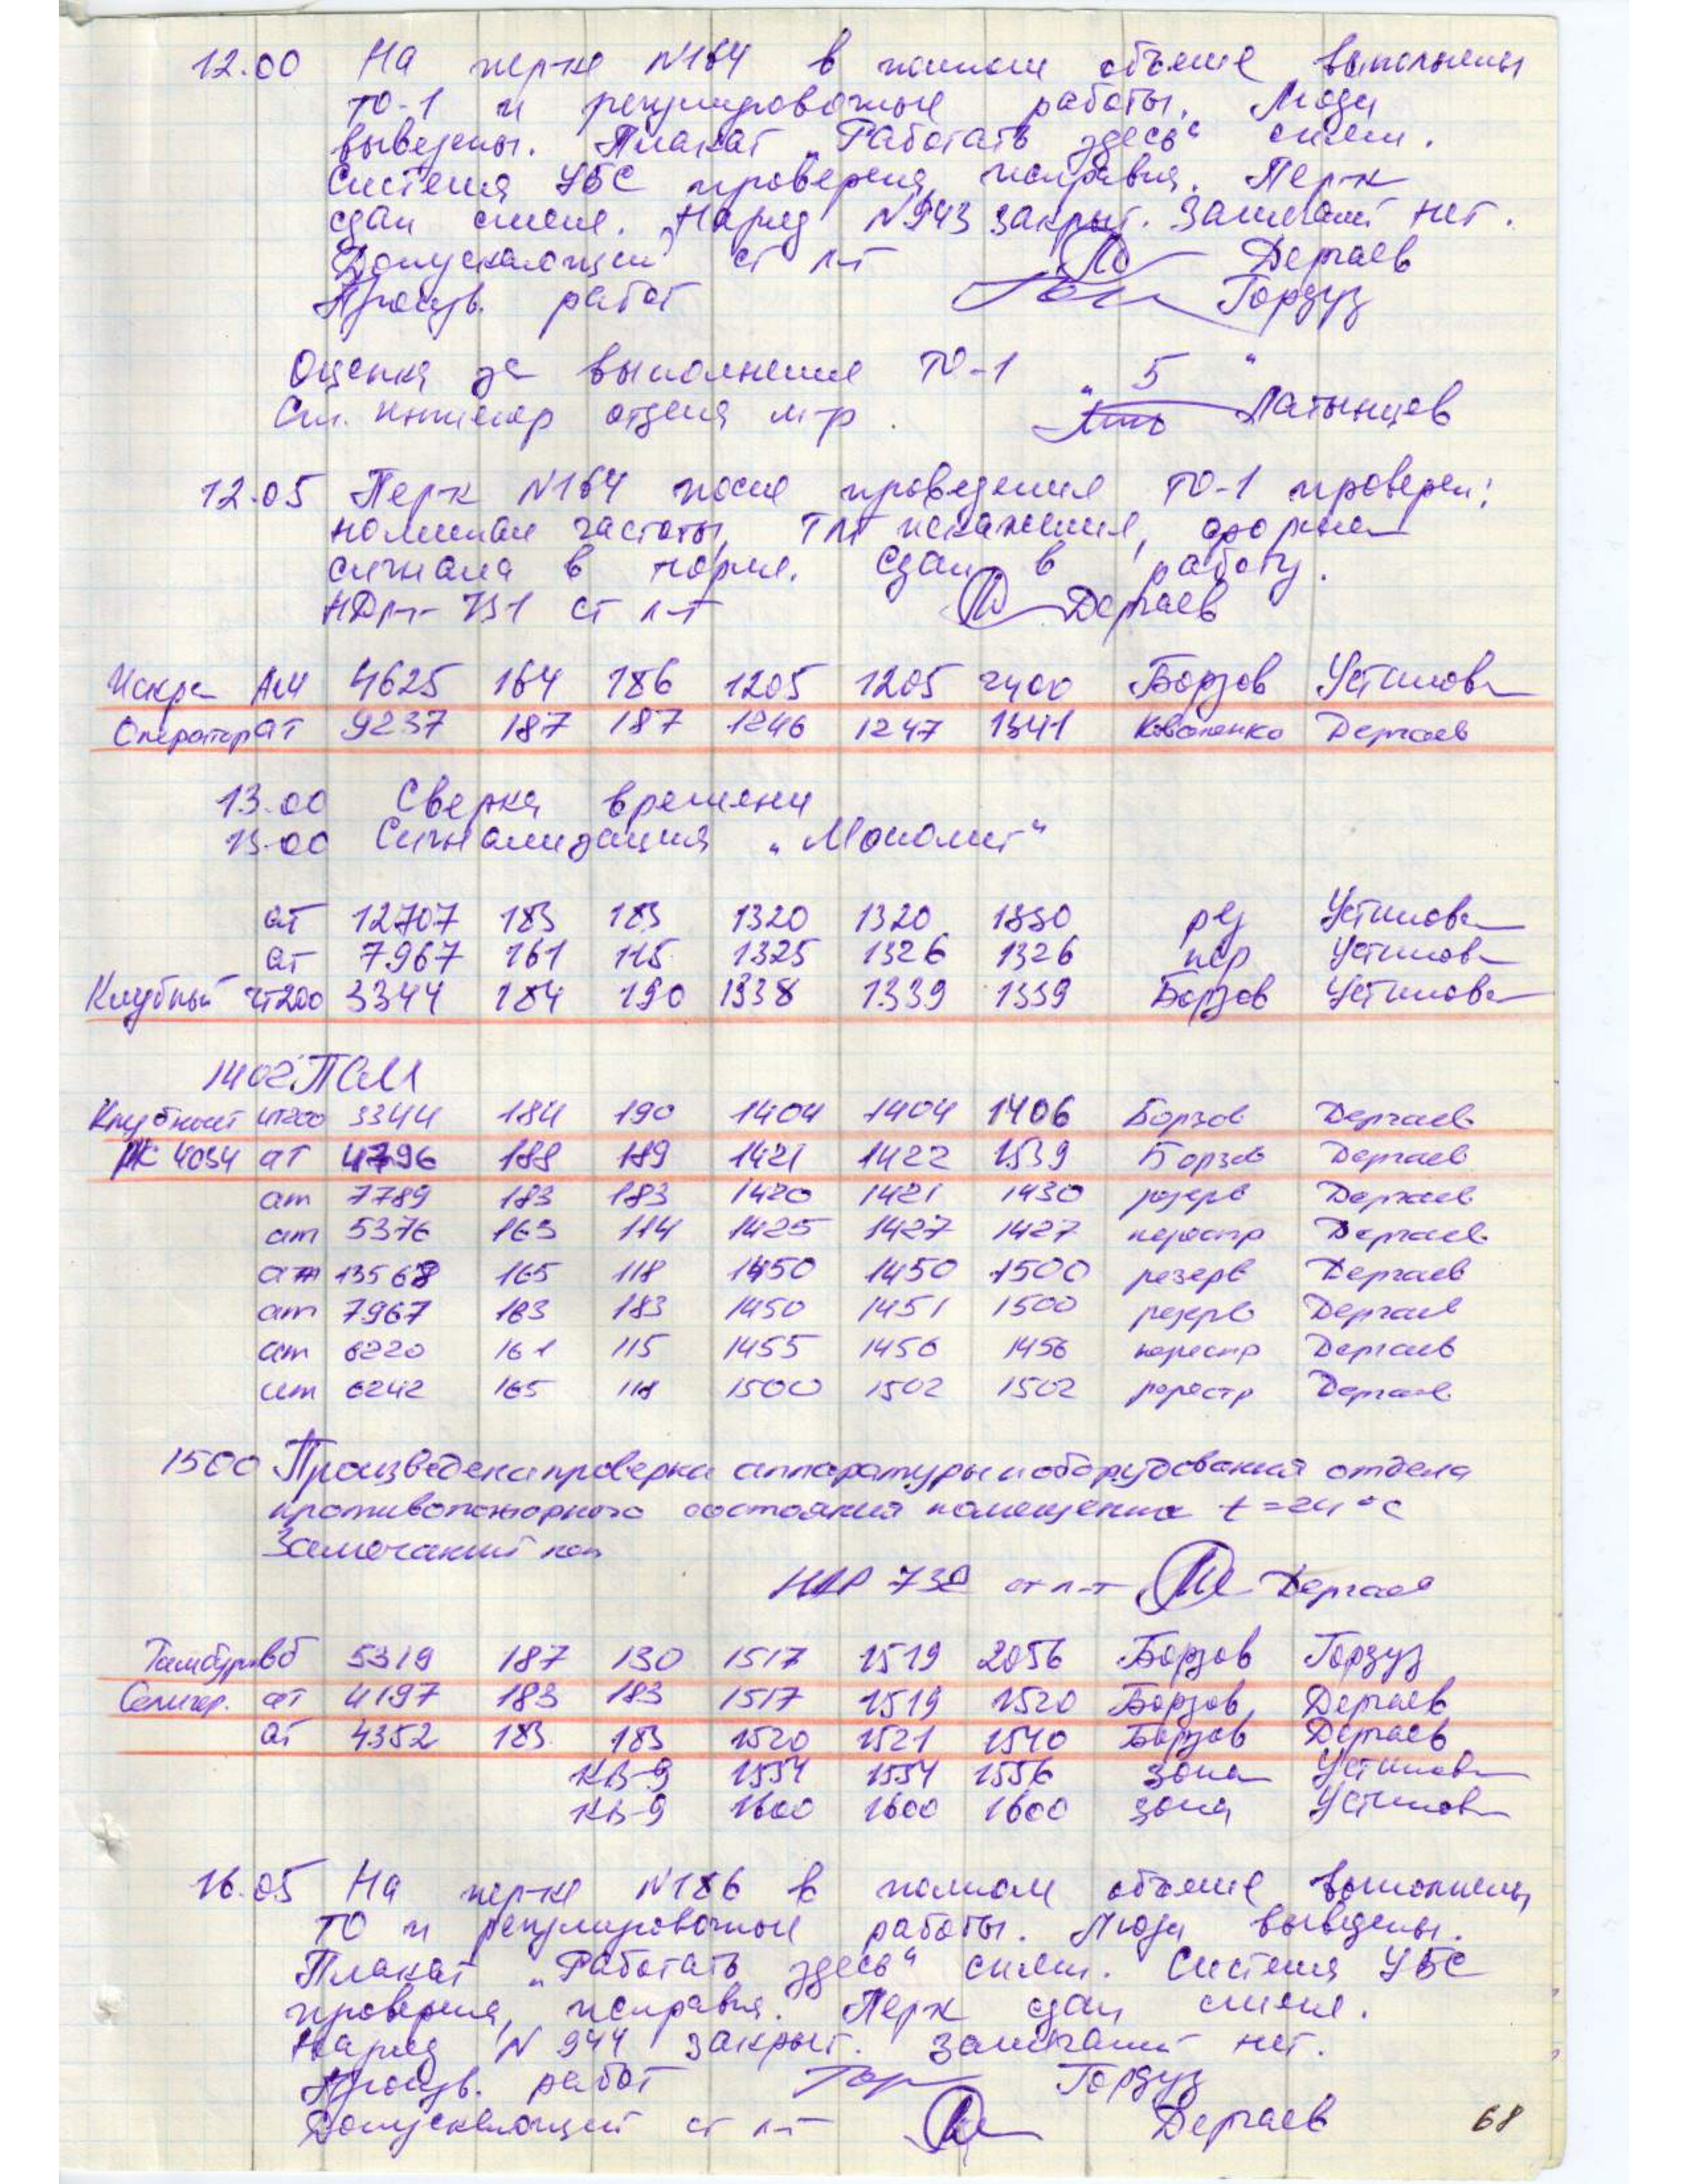 12.00 На перте N164 в полном объеме выполнены
ТО-1 и регулировочные работы. Люди
выведены. Плакат „Работать здесь“ снят.
Система УБС проверена, исправна. Перк
сдан смене. Наряд N943 закрыт. Замечаний нет.
Допускающий ст л-т Дергаев
Произв. работ Гордуз
Оценка за выполнение ТО-1 „5“
Ст. инженер отдела Латынцев
12.05 Перк N164 после проведения ТО-1 проверен:
номинал частоты, ТЛГ искажения, форма
сигнала в норме. Сдан в работу.
НДР-731 ст л-т Дергаев
Искра АМ 4625 164 186 1205 1205 2400 Борзов Устинов
Оператор ат 9237 187 187 1246 1247 1341 Коваленко Дергаев
13.00 Сверка времени
13.00 Сигнализация „Монолит“
ат 12707 183 183 1320 1320 1330 рез Устинов
ат 7967 161 115 1325 1326 1326 пер Устинов
Клубный чт200 3344 184 190 1338 1339 1339 Борзов Устинов
1402 ПСМ
Клубный чт200 3344 184 190 1404 1404 1406 Борзов Дергаев
РК 4034 ат 4796 188 189 1421 1422 1539 Борзов Дергаев
ат 7789 183 183 1420 1421 1430 резерв Дергаев
ат 5376 163 114 1425 1427 1427 перестр Дергаев
ат 13568 165 118 1450 1450 1500 резерв Дергаев
ат 7967 183 183 1450 1451 1500 резерв Дергаев
ат 6220 161 115 1455 1456 1456 перестр Дергаев
ат 6242 165 118 1500 1502 1502 перестр Дергаев
1500 Произведена проверка аппаратуры и оборудования отдела
противопожарного состояния помещения t=24°С
Замечаний нет
НДР 730 ст л-т Дергаев
Тамбурвб 5319 187 130 1517 1519 2056 Борзов Гордуз
Селигер. ат 4197 183 183 1517 1519 1520 Борзов Дергаев
ат 4352 183 183 1520 1521 1540 Борзов Дергаев
КВ-9 1554 1554 1556 зона Устинов
КВ-9 1600 1600 1600 зона Устинов
16.05 На перте N186 в полном объеме выполнены
ТО и регулировочные работы. Люди выведены.
Плакат „Работать здесь“ снят. Система УБС
проверена, исправна. Перк сдан смене.
Наряд N 944 закрыт. Замечаний нет.
Произв. работ Гордуз
Допускающий ст л-т Дергаев
68